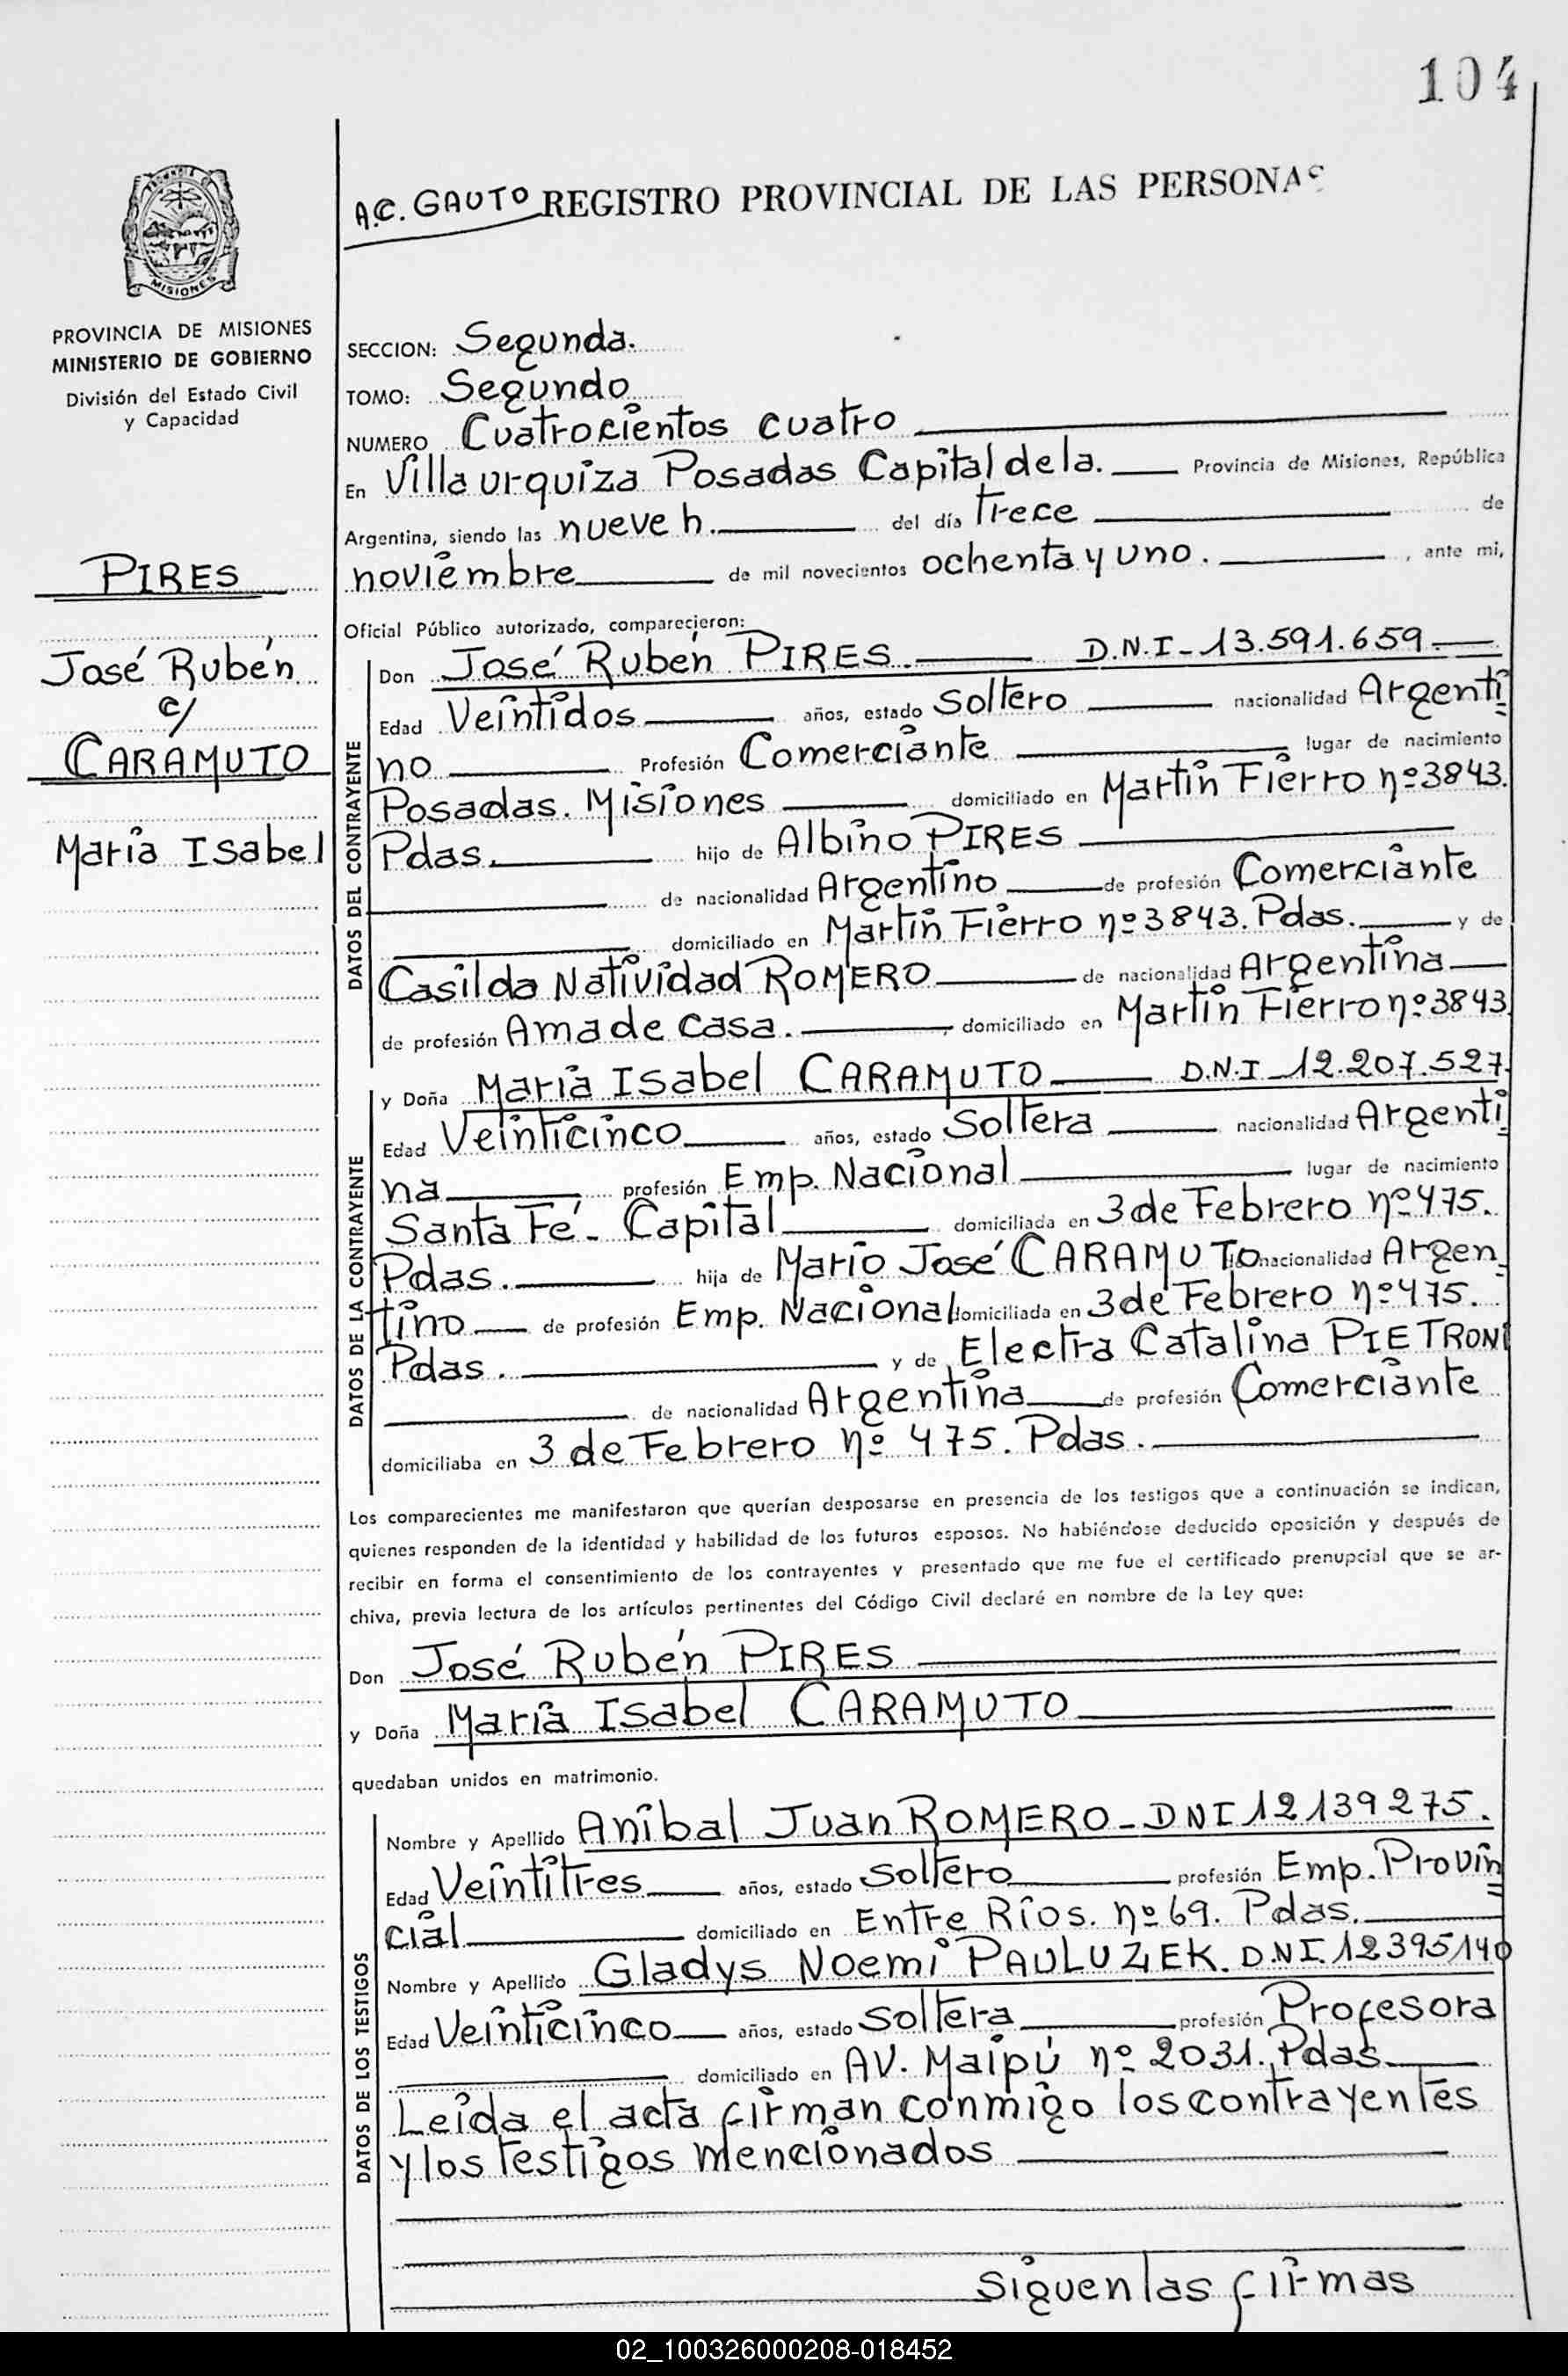 104
A.C. GAUTO REGISTRO PROVINCIAL DE LAS PERSONAS
MISIONES
PROVINCIA DE MISIONES
MINISTERIO DE GOBIERNO
División del Estado Civil
y Capacidad
SECCION: Segunda.
TOMO: Segundo
NUMERO Cuatrocientos cuatro
En Villa urquiza Posadas Capital de la. Provincia de Misiones, República
Argentina, siendo las nueve h. del día trece de
noviembre de mil novecientos ochenta y uno. , ante mi,
Oficial Público autorizado, comparecieron:
PIRES
José Rubén
c/
CARAMUTO
María Isabel
DATOS DEL CONTRAYENTE
Don José Rubén PIRES. D.N.I - 13.591.659.
Edad Veintidos años, estado Soltero nacionalidad Argenti
no Profesión Comerciante lugar de nacimiento
Posadas. Misiones domiciliado en Martín Fierro nº 3843.
Pdas. hijo de Albino PIRES
de nacionalidad Argentino de profesión Comerciante
domiciliado en Martín Fierro nº 3843. Pdas. y de
Casilda Natividad ROMERO de nacionalidad Argentina
de profesión Ama de casa. , domiciliado en Martín Fierro nº 3843
DATOS DE LA CONTRAYENTE
y Doña María Isabel CARAMUTO D.N.I - 12.207.527.
Edad Veinticinco años, estado Soltera nacionalidad Argenti
na profesión Emp. Nacional lugar de nacimiento
Santa Fé - Capital domiciliada en 3 de Febrero nº 475.
Pdas. hija de Mario José CARAMUTO nacionalidad Argen
tino de profesión Emp. Nacional domiciliada en 3 de Febrero nº 475.
Pdas. y de Electra Catalina PIETRONI
de nacionalidad Argentina de profesión Comerciante
domiciliaba en 3 de Febrero nº 475. Pdas.
Los comparecientes me manifestaron que querían desposarse en presencia de los testigos que a continuación se indican,
quienes responden de la identidad y habilidad de los futuros esposos. No habiéndose deducido oposición y después de
recibir en forma el consentimiento de los contrayentes y presentado que me fue el certificado prenupcial que se ar-
chiva, previa lectura de los artículos pertinentes del Código Civil declaré en nombre de la Ley que:
Don José Rubén PIRES
y Doña María Isabel CARAMUTO
quedaban unidos en matrimonio.
DATOS DE LOS TESTIGOS
Nombre y Apellido Aníbal Juan ROMERO - DNI 12139275.
Edad Veintitres años, estado soltero profesión Emp. Provin
cial domiciliado en Entre Ríos. nº 69. Pdas.
Nombre y Apellido Gladys Noemí PAULUZEK. D.N.I. 12395140
Edad Veinticinco años, estado soltera profesión Profesora
domiciliado en AV. Maipú nº 2031. Pdas.
Leída el acta firman conmigo los contrayentes
y los testigos mencionados
Siguen las firmas
02_100326000208-018452